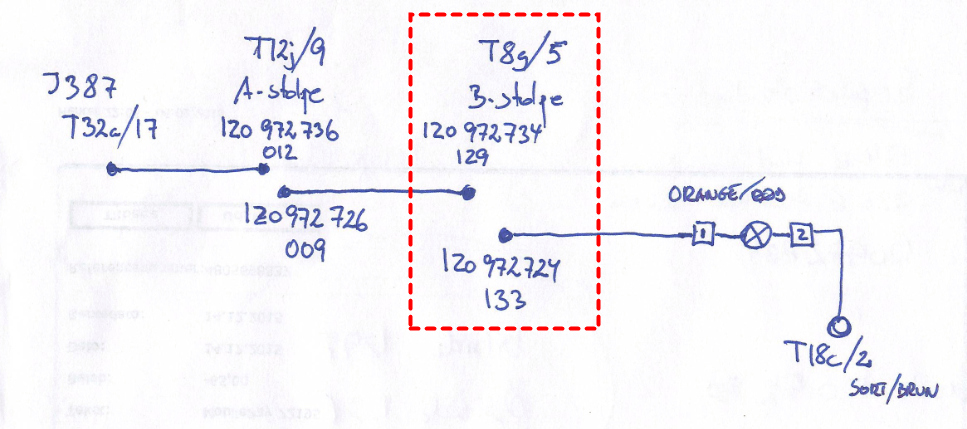 J387
T32c/17
T12j/9
A-stolpe
120 972 736
012
120 972 726
009
T8g/5
B-stolpe
120 972 734
129
120 972 724
133
ORANGE/RØD
1
2
T18c/2
SORT/BRUN